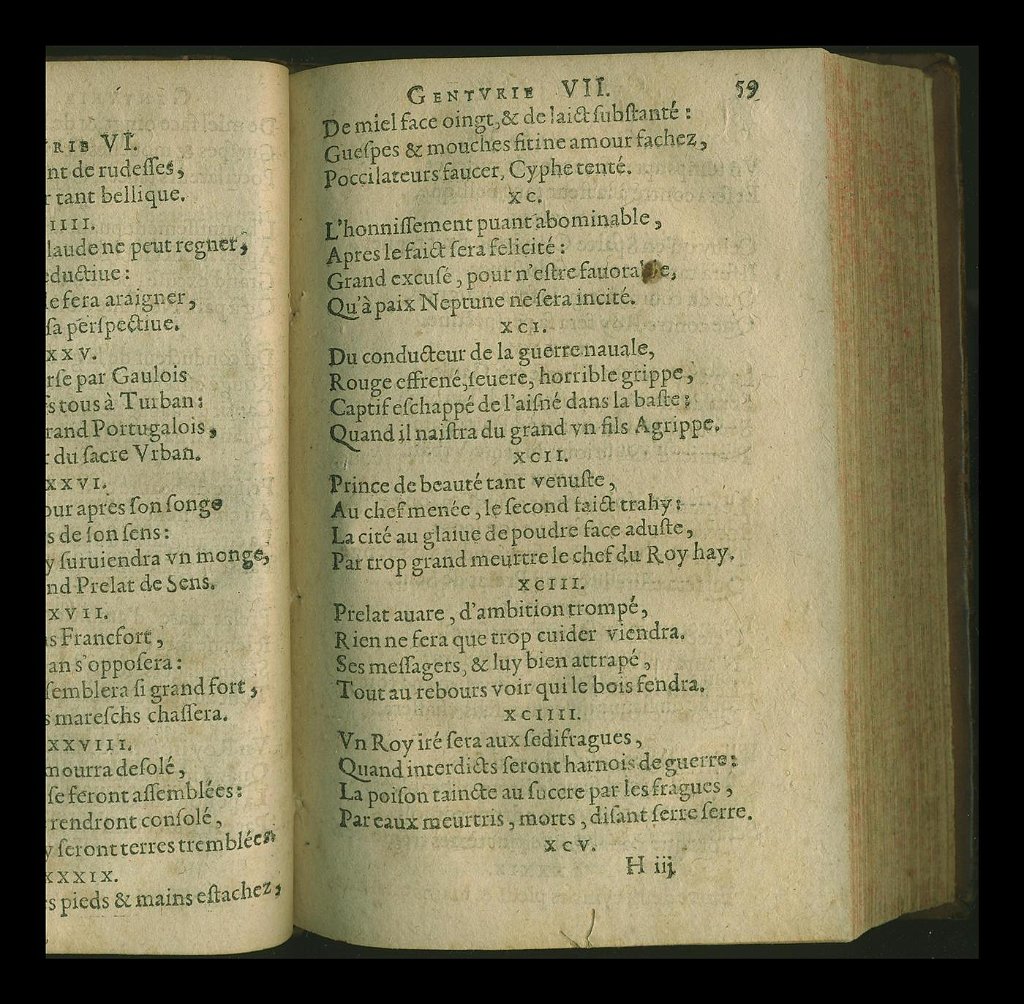 RIE VI.
nt de rudesses,
r tant bellique.
IIII.
laude ne peut regner,
eductiue:
le fera araigner,
sa perspectiue.
XXV.
rse par Gaulois
s tous à Turban:
rand Portugalois,
r du sacre Vrban.
XXVI.
our apres son songe
s de son sens:
y suruiendra vn monge,
nd Prelat de Sens.
XVII.
is Francfort,
an s'opposera:
semblera si grand fort,
s mareschs chassera.
XXVIII.
mourra desolé,
se feront assemblées:
rendront consolé,
y seront terres tremblées.
XXXIX.
s pieds & mains estachez,
CENTVRIE VII. 59
De miel face oingt, & de laict substanté:
Guespes & mouches fitine amour fachez,
Poccilateurs faucer, Cyphe tenté.
XC.
L'honnissement puant abominable,
Apres le faict sera felicité:
Grand excusé, pour n'estre fauorable,
Qu'à paix Neptune ne sera incité.
XCI.
Du conducteur de la guerre nauale,
Rouge effrené, seuere, horrible grippe,
Captif eschappé de l'aisné dans la baste:
Quand il naistra du grand vn fils Agrippe.
XCII.
Prince de beauté tant venuste,
Au chef menée, le second faict trahy:
La cité au glaiue de poudre face aduste,
Par trop grand meurtre le chef du Roy hay.
XCIII.
Prelat auare, d'ambition trompé,
Rien ne fera que trop cuider viendra.
Ses messagers, & luy bien attrapé,
Tout au rebours voir qui le bois fendra.
XCIIII.
Vn Roy iré sera aux sedifragues,
Quand interdicts seront harnois de guerre:
La poison taincte au succre par les fragues,
Par eaux meurtris, morts, disant serre serre.
XCV.
H iij